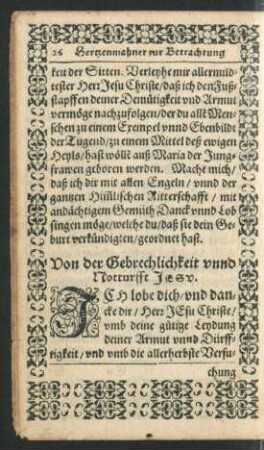 26 Hertzenmahner zur Betrachtung
ken der Sitten. Verleyhe mir allermild-
tester Herr Jesu Christe/daß ich den Fuß-
stapffen deiner Demütigkeit vnd Armut
vermöge nachzufolgen/der du alln Men-
schen zu einem Exempel vnnd Ebenbildt
der Tugend/zu einem Mittel deß ewigen
Heyls/hast wölln auß Maria der Jung-
frawen geboren werden. Mache mich/
daß ich dir mit allen Engeln/ vnnd der
gantzen Himlischen Ritterschafft / mit
andächtigem Gemüth Danck vnnd Lob
singen möge/welche du/daß sie dein Ge-
burt verkündigten/geordnet hast.
Von der Gebrechlichkeit vnnd
Notturfft JESV.
ICH lobe dich/vnd dan-
cke dir/ Herr JEsu Christe/
vmb deine gütige Leydung
deiner Armut vnnd Dürff-
tigkeit/ vnd vmb die allerherbste Versu-
chung